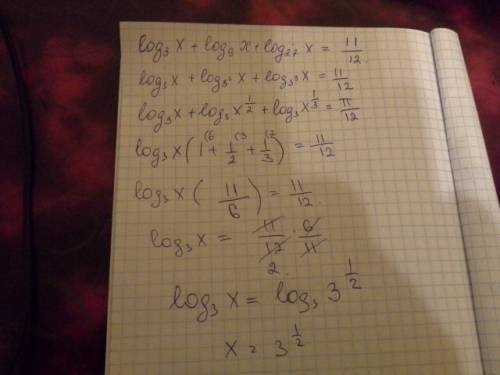 log₃x + log₉x + log₂₇x = 11/12
log₃x + log₃²x + log₃³x = 11/12
log₃x + log₃x^(1/2) + log₃x^(1/3) = 11/12
log₃x(1^(6 + 1/2^(3 + 1/3^(2) = 11/12
log₃x(11/6) = 11/12
log₃x = 11/12 · 6/11
2
log₃x = log₃3^(1/2)
x = 3^(1/2)